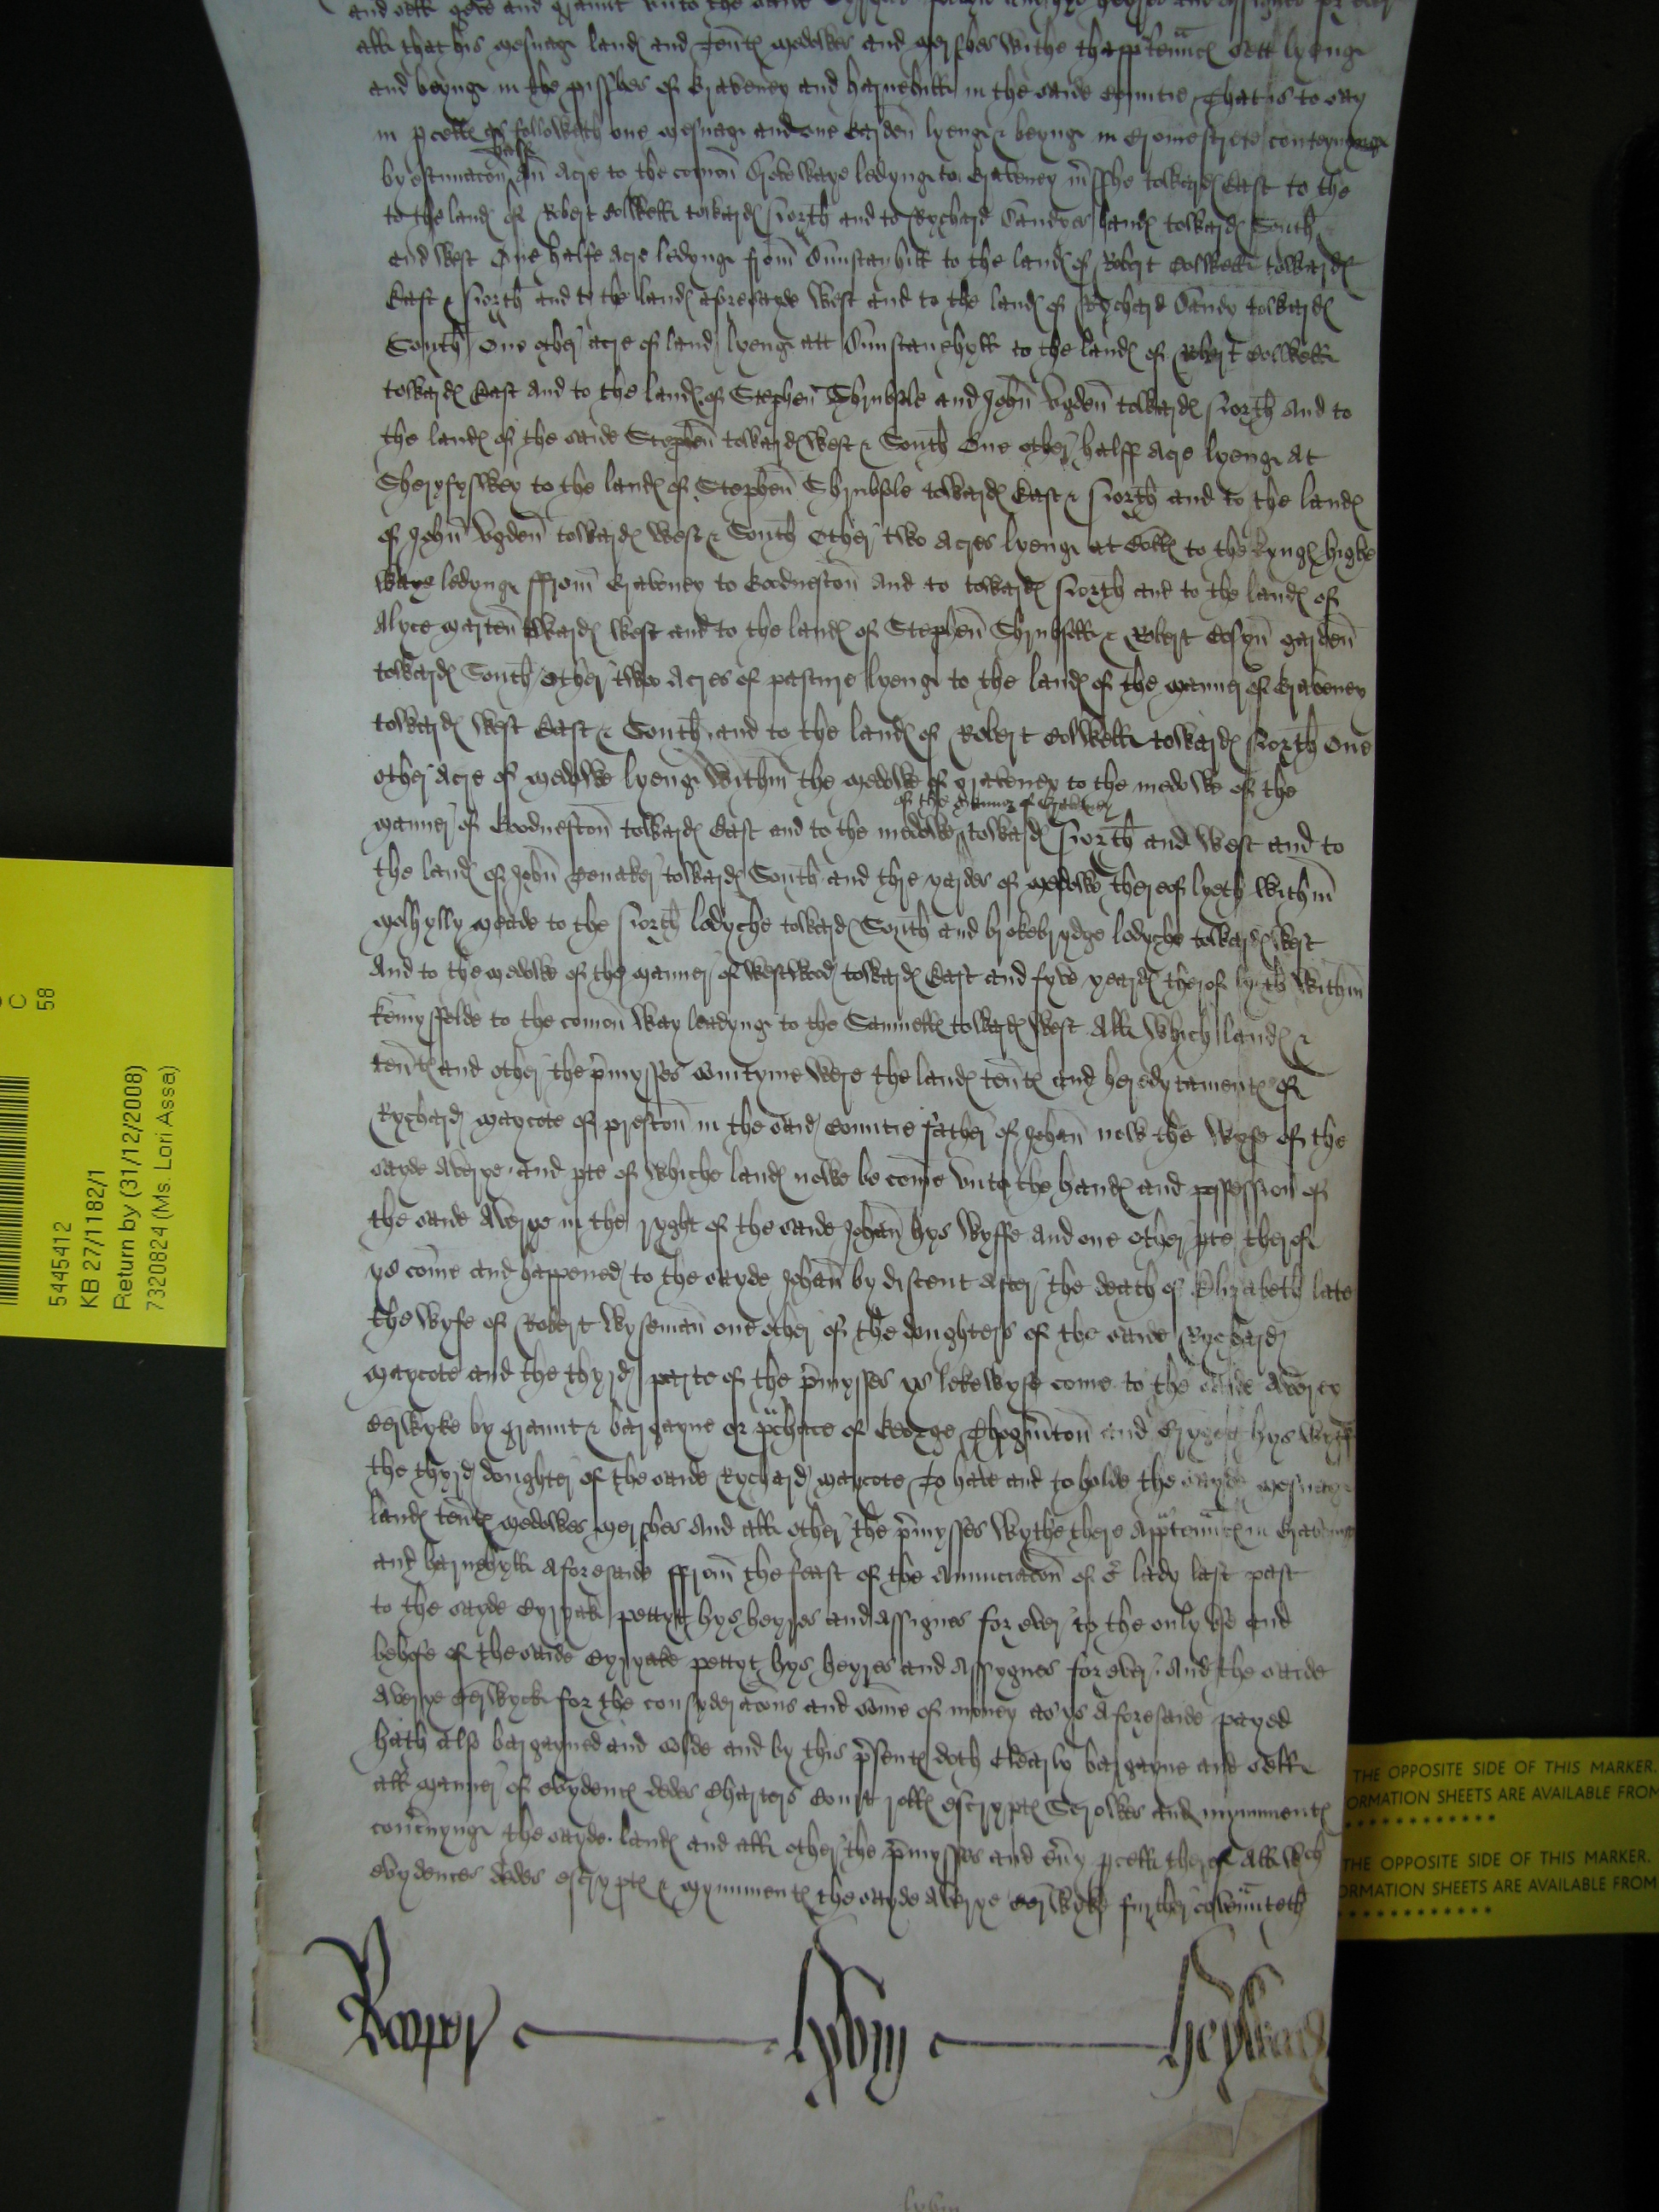 all that his mesuage land and tent medowes and mershes withe thapptennc sett lyenge
and beynge in the pisshes of Graveney and harnehill in the saide Countie That is to say
in pcell as followeth one mesuage and one Garden lyenge & beynge in Cromestrete conteynynge
half
by estimacon an Acre to the comon waye ledynge to Graveney towards East to the
to the land of Robert Colwell towards North and to Rychard Sandyes land towards South
and West One halfe Acre ledynge from Dunstanhill to the land of Robert Colwell towards
East & North and to the land aforesayde West and to the land of Rychard Sandy towards
South One other acre of land lyenge att Dunstanehyll to the land of Robert Colwell
towards East And to the land of Stephen Shrubsole and John Ugden towards North And to
the land of the saide Stephen towards West & South One other halff Acre lyenge At
Sheryfyswey to the land of Stephen Shrubsole towards East & North and to the land
of John Ugden towards West & South Other two Acres lyenge at to the kyng highe
waye ledynge ffrom Graveney to Goodneston And to towards North and to the land of
Alyce Marten towards West and to the land of Stephen Shrubsoll & Robert Cosyn garden
towards South Other two Acres of pasture lyenge to the land of the manner of Graveney
towards West East & South and to the land of Robert Colwell towards North One
other Acre of medowe lyenge within the medowe of graveney to the medowe of the
of the mannor of Graveney
manner of Goodneston towards East and to the medowe towards North and West and to
the land of John towards South and thre yardes of medowe thereof lyeth within
meade to the North ledyche towards South and brokebrydge ledyche towards West
And to the medowe of the manner of Westwood towards East and fyve yeards therof lyeth within
to the comon way leadynge to the towards West All which land &
tent and other the pmysses somtyme were the land tent and heredytament of
Rychard maycote of preston in the said Countie father of Johan now the wyfe of the
sayde Averye and pte of whiche land nowe be come unto the hand and possession of
the saide Averye in the ryght of the saide Johan hys wyffe And one other pte therof
ys come and happened to the sayde Johan by discent after the death of Elizabeth late
the wyfe of Robert Wyseman one other of the doughters of the saide Rychard
maycote and the thyrd parte of the pmysses ys lekewyse come to the saide Averey
Berwyke by graunt & bargayne or pchace of George and hys wyff
the thyrd doughter of the saide Rychard maycote To have and to holde the sayde mesuage
land tent medowes mershes And all other the pmysses wythe there Apptennc in Graveney
and harnehyll aforesaide ffrom the feast of the Annunciacon of or lady last past
to the sayde Cyryak pettyt hys heyres and assignes for ever to the only use and
behofe of the saide Cyryake pettyt hys heyres and Assygnes for ever And the saide
Averye Berwyck for the consyderacons and some of money as ys aforesaide payed
hath also bargayned and solde and by this psent doth clearly bargayne and sell
all manner of evydenc dedes Charters Court roll escrypt Scrowles and mynument
concnynge the sayde land and all other the pmysses and evy pcell therof All wch
evydences dedes escrypt & mynument the sayde Averye Berwyke further covenuteth
Rooper
5445412
KB 27/1182/1
Return by (31/12/2008)
7320824 (Ms. Lori Assa)
C
58
THE OPPOSITE SIDE OF THIS MARKER.
ORMATION SHEETS ARE AVAILABLE FROM
THE OPPOSITE SIDE OF THIS MARKER.
ORMATION SHEETS ARE AVAILABLE FROM